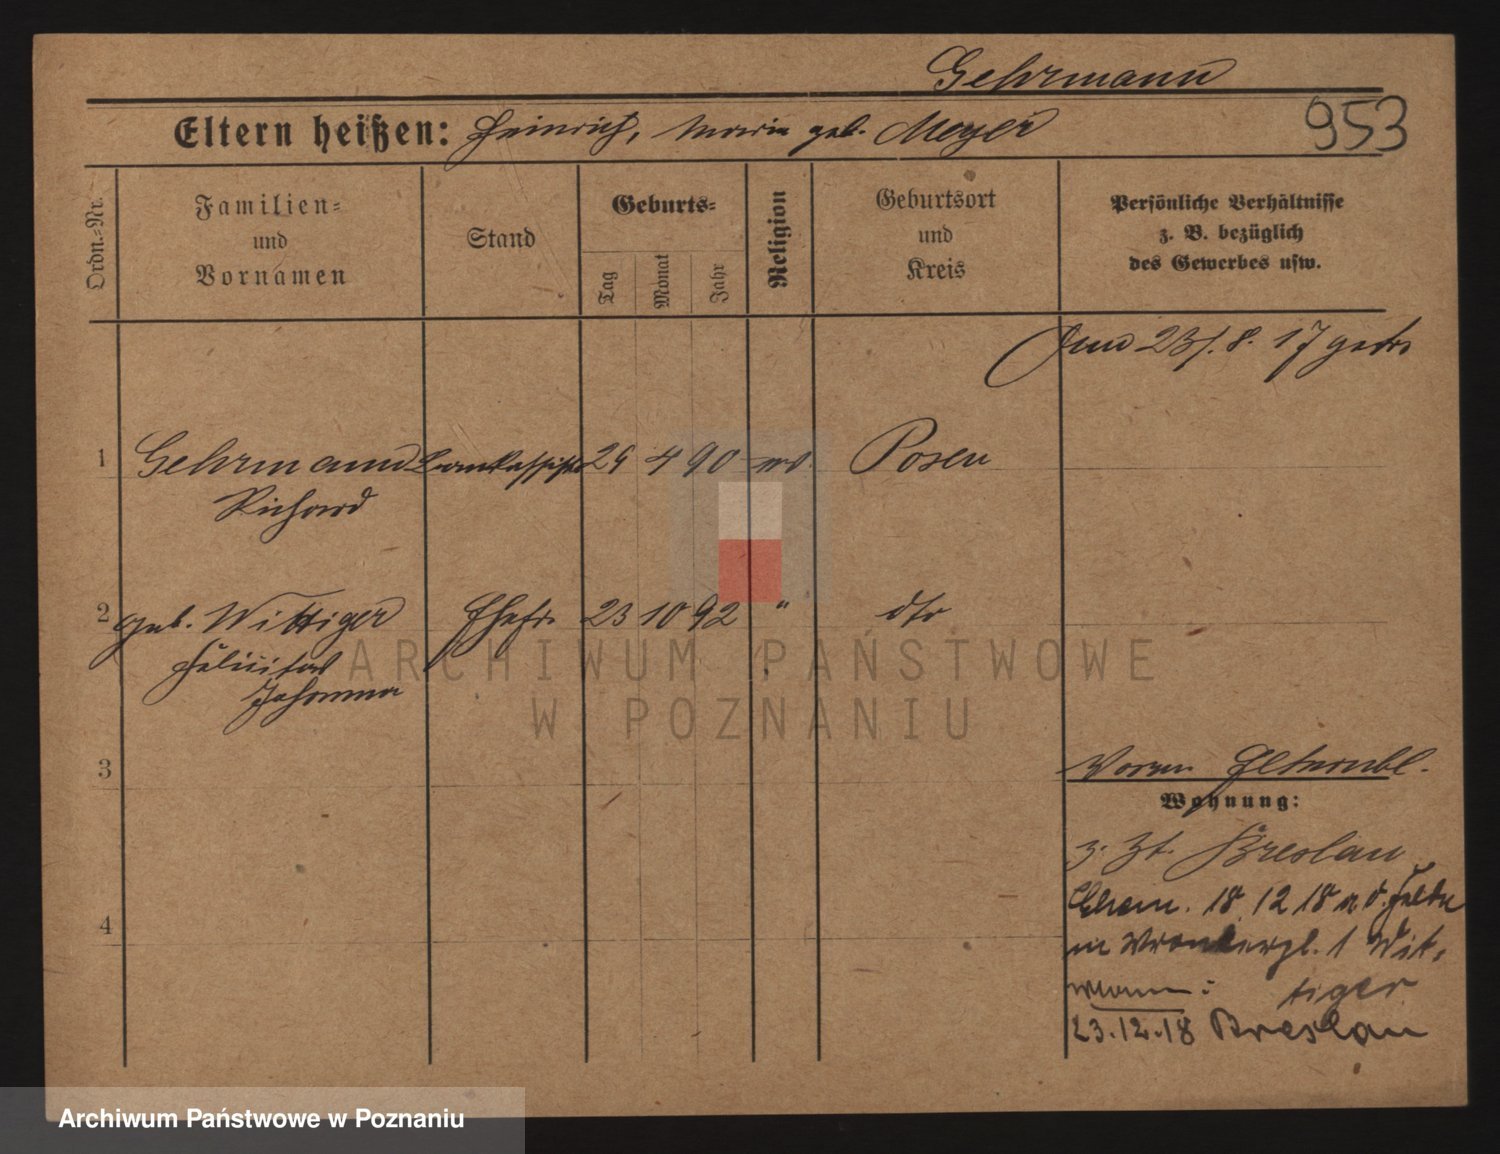 Gehrmann
953
Eltern heißen: Heinrich, Maria geb. Meyer
Ordn.-Nr.
Familien-
und
Vornamen
Stand
Geburts-
Tag
Monat
Jahr
Religion
Geburtsort
und
Kreis
Persönliche Verhältnisse
z. B. bezüglich
des Gewerbes usw.
23/.8. 17 getr.
1 Gehrmann 4 90 Posen
Richard
2 geb. Wittiger Ehefr. 23 10 92 " dto
Felicitas
Johanna
3
Elternbl.
Wohnung:
z. Zt. Breslau
Ehem. 18 12 18 a. d. Felde
1 Wit-
tiger
23.12.18 Breslau
4
ARCHIWUM PAŃSTWOWE
W POZNANIU
Archiwum Państwowe w Poznaniu